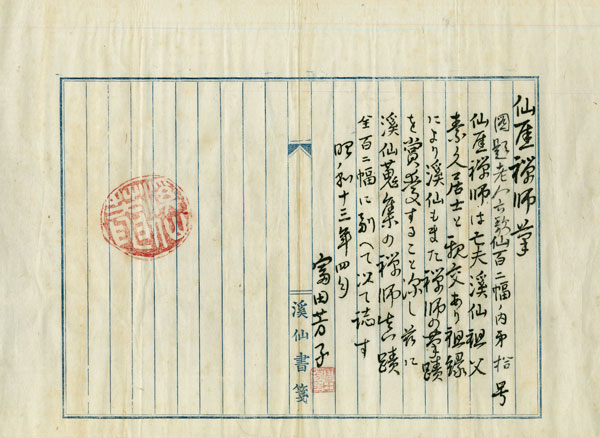 仙厓禅師筆
圖題老人六歌仙百二幅ノ内第拾号
仙厓禅師は亡夫溪仙祖父
素久居士と親交あり祖縁
により溪仙もまた禅師の筆蹟
を賞愛すること深し茲に
溪仙蒐集の禅師真蹟
全百二幅に副へて以て誌す
昭和十三年四月
富田芳子
溪仙書箋